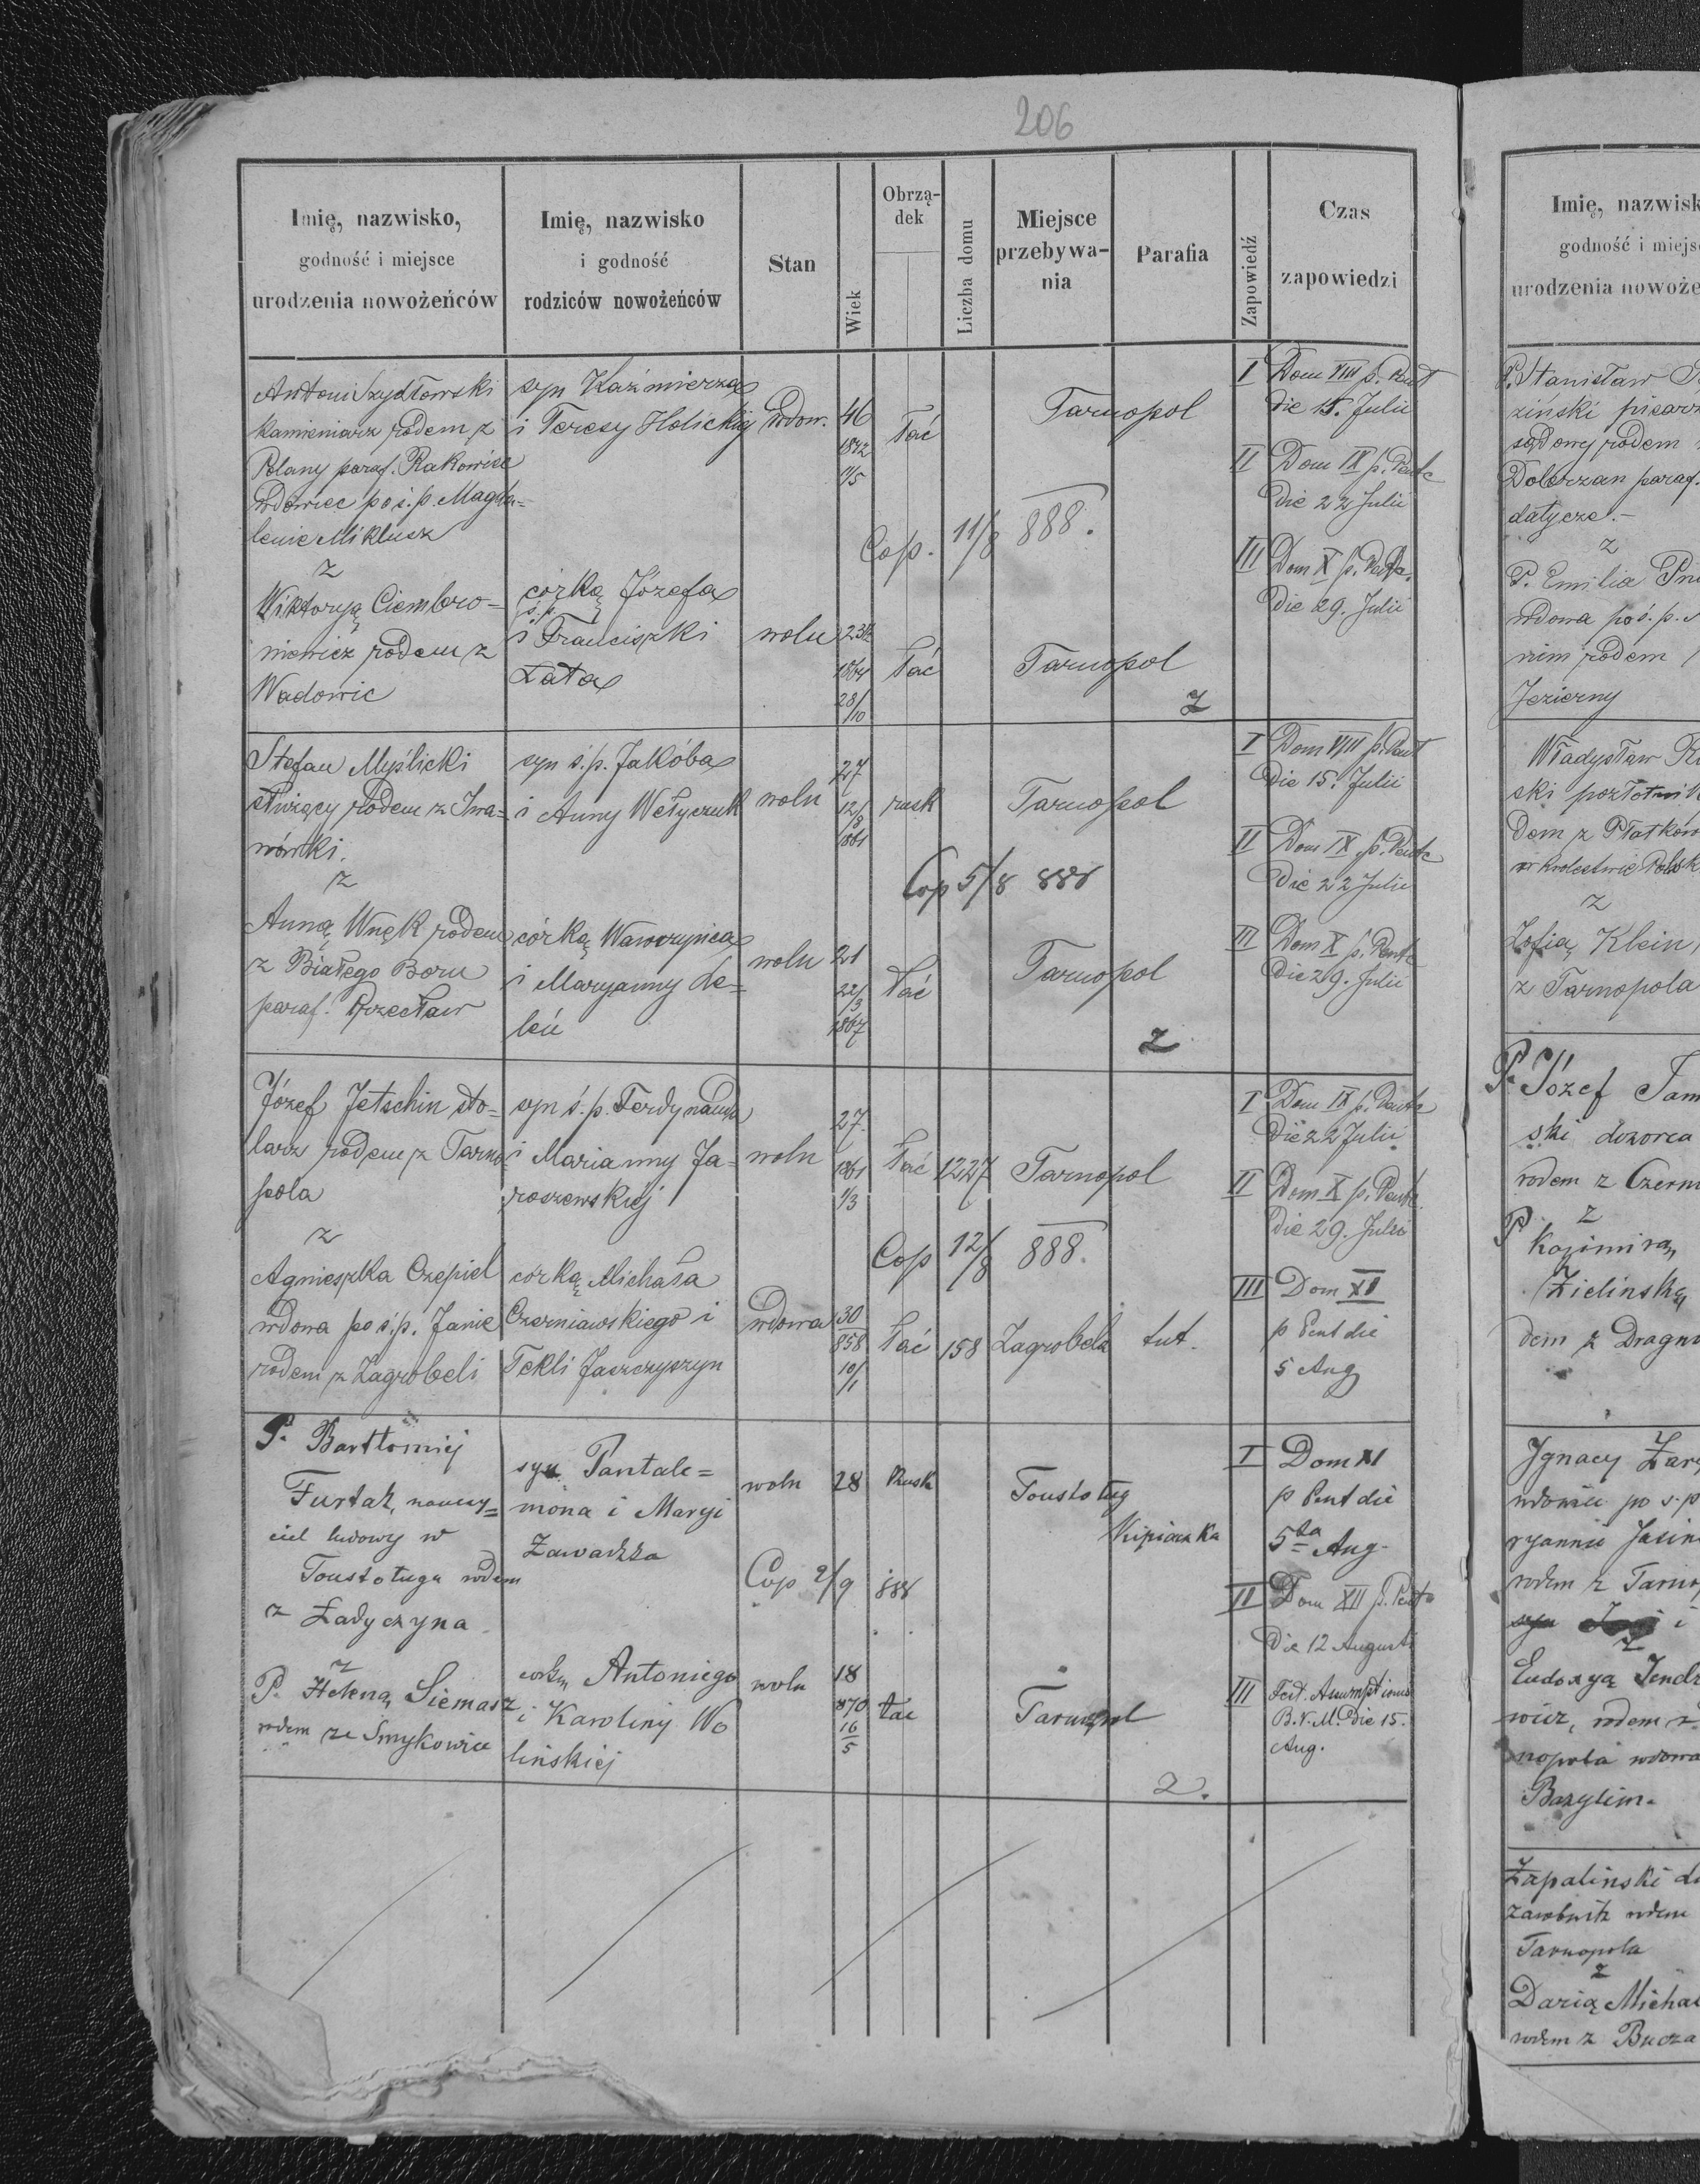 206
Imię, nazwisko,
godność i miejsce
urodzenia nowożeńców
Imię, nazwisko
i godność
rodziców nowożeńców
Stan
Wiek
Obrzą-
dek
Liczba domu
Miejsce
przebywa-
nia
Parafia
Zapowiedź
Czas
zapowiedzi
Antoni Szydłowski
kamieniarz rodem z
Polany paraf. Rakowice
wdowiec po ś.p. Magda=
lenie Miklusz
z
Wiktoryą Ciembro=
niewicz rodem z
Wadowic
syn Kaźmierza
i Teresy Holickiej
córką Józefa
ś.p.
i Franciszki
Łata
wdow.
46
1842
11/5
łać
Tarnopol
Cop. 11/8 888.
woln
23½
1864
28/10
łać
Tarnopol
2
I Dom VIII p. Pent
die 15. Julii
II Dom IX p. Pente
die 22 Julii
III Dom X p. Pente.
die 29. Julii
Stefan Myślicki
służący rodem z Iwa=
nówki.
z
Anną Wnęk rodem
z Białego Boru
paraf. Przecław
syn ś.p. Jakóba
i Anny Wełyczuk
córką Wawrzyńca
i Maryanny de=
leń
woln
27
12/8
1861
rusk
Tarnopol
Cop 5/8 888
woln
21
22/3
1867
łać
Tarnopol
2
I Dom VIII p. Pent
die 15. Julii
II Dom IX p. Pente
die 22 Julii
III Dom X p. Pente
die 29. Julii
Józef Jetschin sto=
larz rodem z Tarno=
pola
z
Agnieszka Czepiel
wdowa po ś.p. Janie
rodem z Zagrobeli
syn ś.p. Ferdynanda
i Marianny Ja=
roszewskiej
córką Michała
Czerniawskiego i
Tekli Jaszczyszyn
woln
27.
1861
1/3
łać
1227
Tarnopol
Cop 12/8 888.
wdowa
30
858
10/1
łać
158
Zagrobela
tut.
I Dom IX p. Pente
die 22 Julii
II Dom X p. Pente.
die 29. Julii
III Dom XI
p Pent die
5 Aug
P. Bartłomiej
Furtak, nauczy=
ciel ludowy w
Toustoługu rodem
z Ładyczyna
z
P. Heleną Siemasz
rodem ze Smykowiec
syn Pantale=
mona i Maryi
Zawadzka
córką Antoniego
i Karoliny Wo
lińskiej
woln
28
Rusk
Toustoług
Cop 2/9 888
woln
18
870
16/5
łac
Tarnopol
2.
I Dom XI
p Pent die
5ta Aug.
II Dom XII p. Pente
die 12 Augusti
III Fest. Assumptionis
B.V.M. die 15.
Aug.
Imię, nazwisk
godność i miejs
urodzenia nowoże
P. Stanisław
ziński pisarz
sądowy rodem
Dołerzan paraf.
datycze.-
z
P. Emilia
wdowa po ś.p.
nim rodem
Jezierny
Władysław
ski pozłotnik
dem z Płatków
w królestwie Polsk
z
Zofią Klein,
z Tarnopola
P. Józef
ski dozorca
rodem z Czern
z
P Kazimirą
Zielinską
dem z Dragn
Ignacy
wdowiec po ś.p
ryannie
rodem z Tarno
syn i
z
Eudoxyą Jendr
wicz, rodem z
nopola wdowa
Bazylim.
Zapalinski
zarobnik rodem
Tarnopola
z
Darią Michal
rodem z Bucza